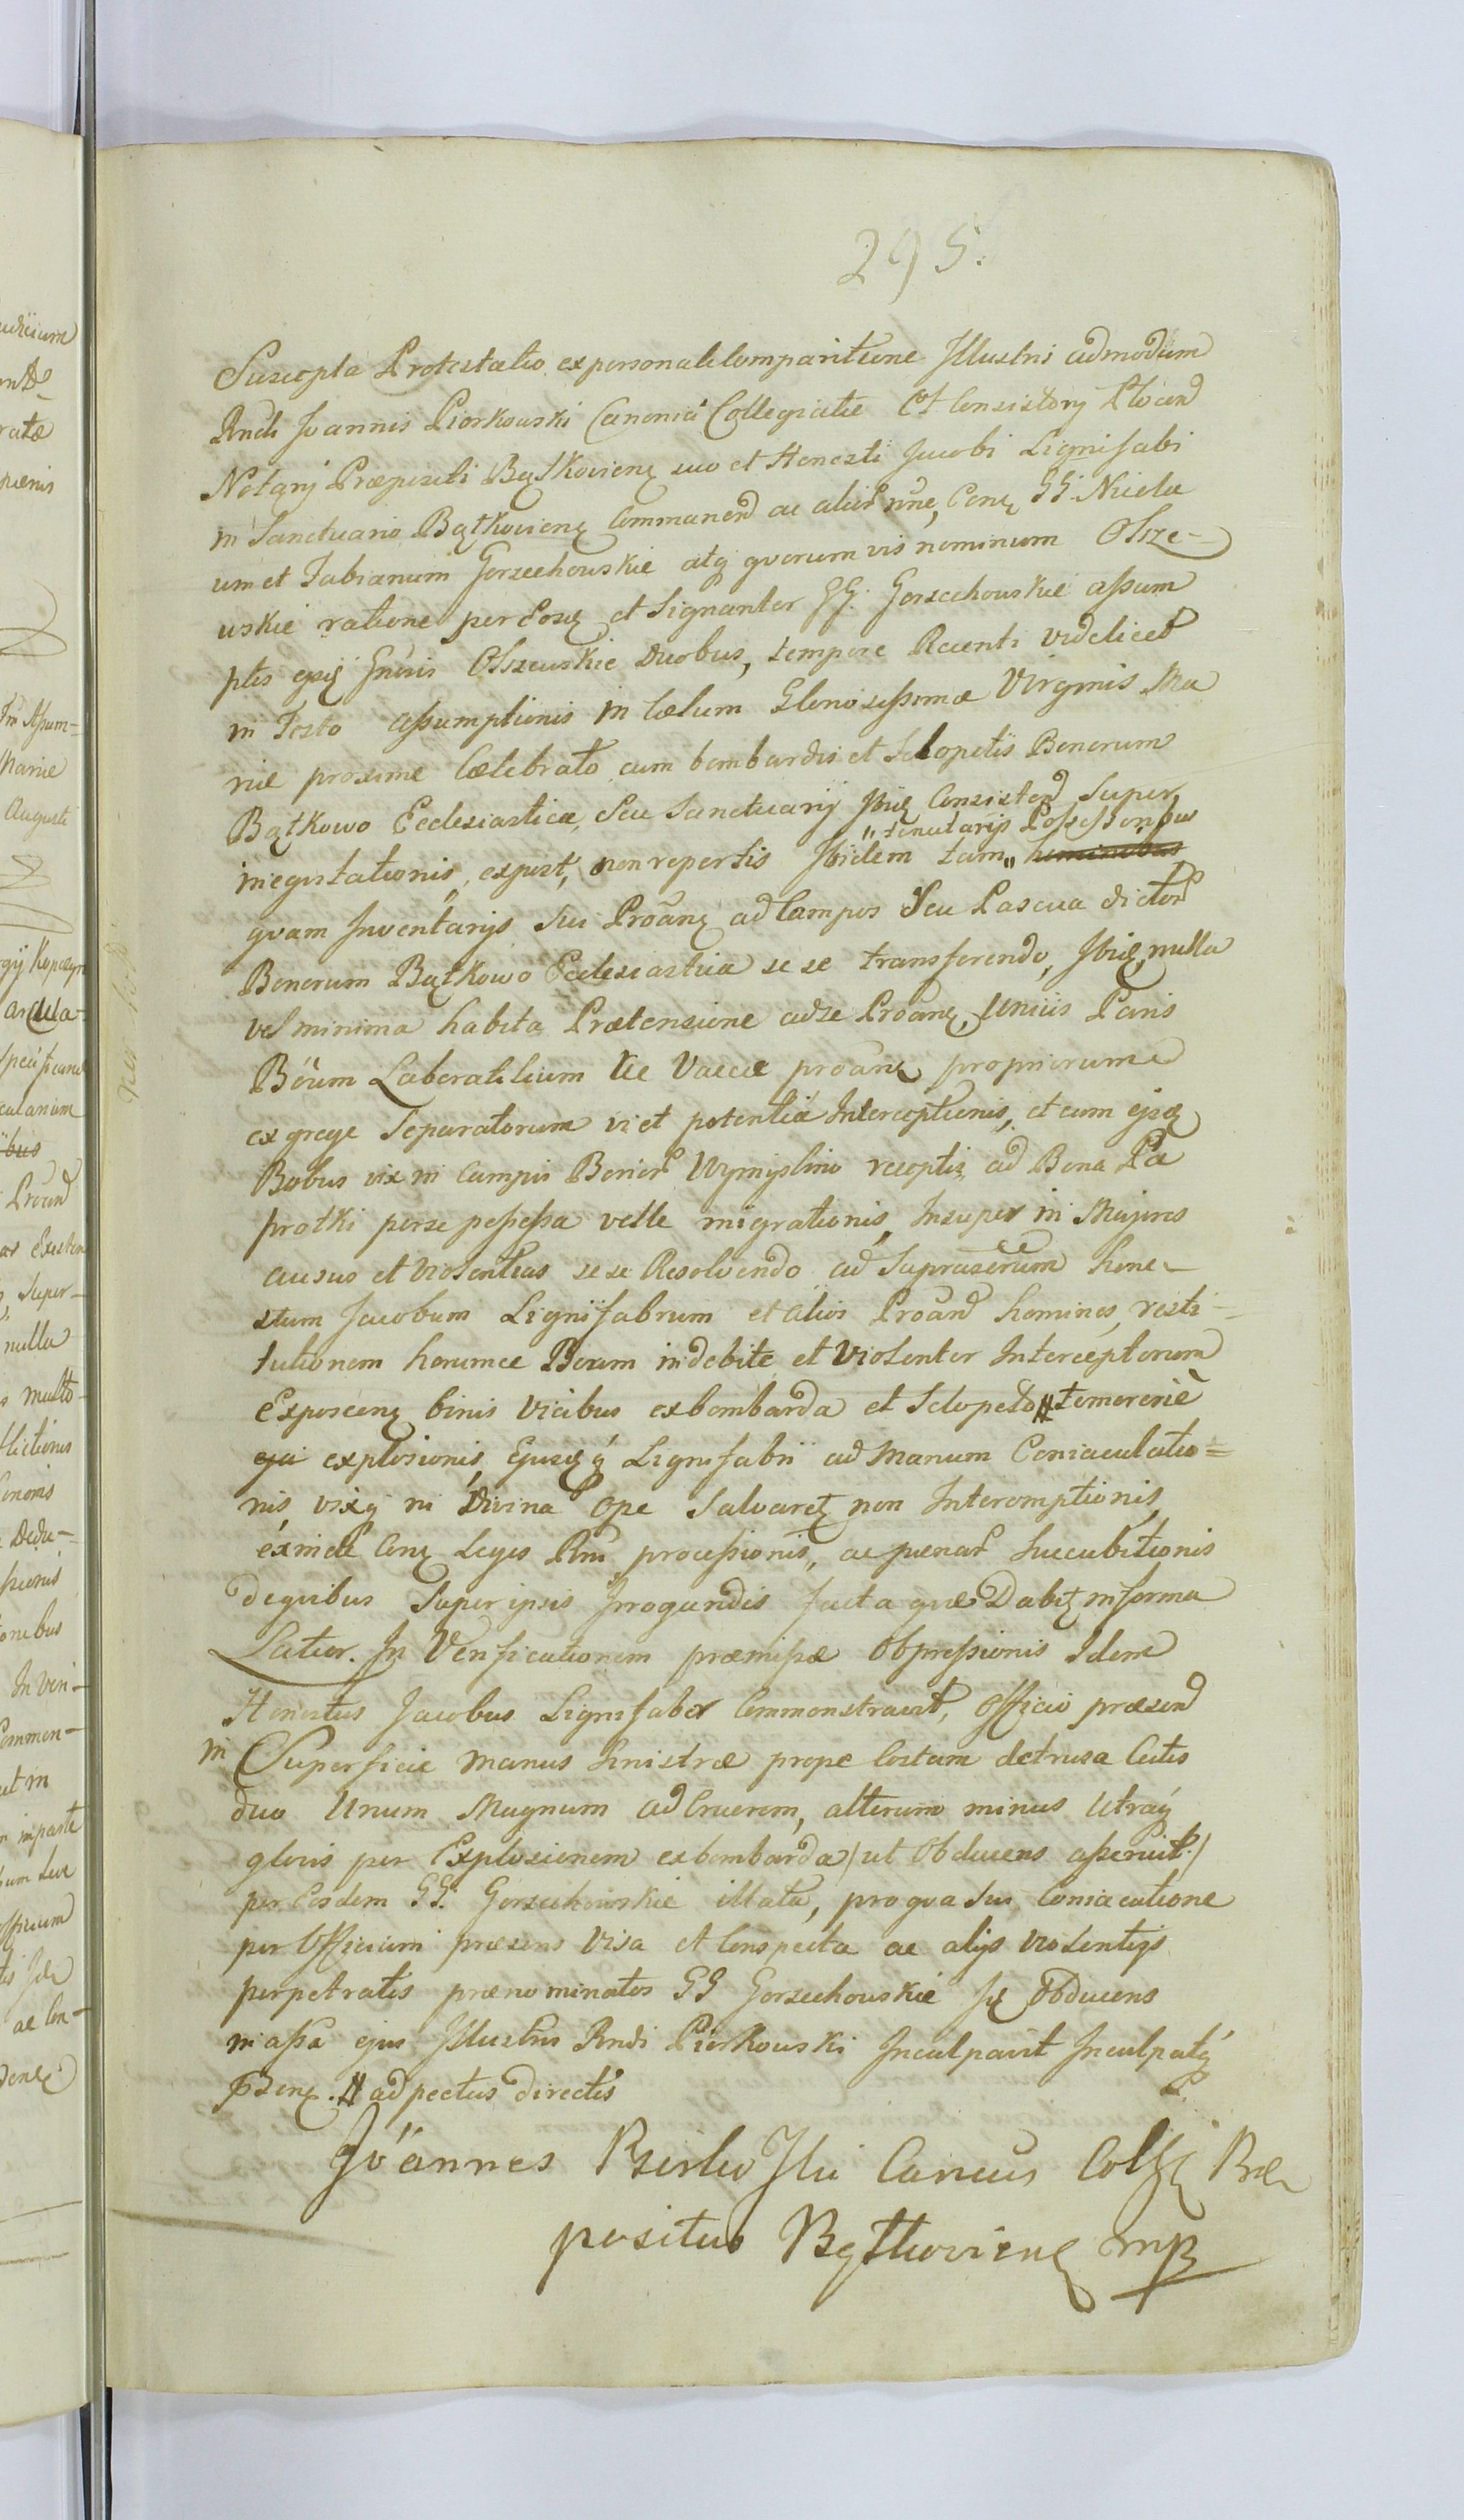 295.
Suscepta Protestatio ex personali Comparitione Illustri admodum
Rndi Joannis Piorkowski Canonici Collegiatæ Et Consistorij Plocen
Notarij Præpositi Bątkovien suo et Honesti Jacobi Lignifabi
in Sanctuario Bątkovien Commanen ac alior nne, Con GG. Nicola
um et Fabianum Gorzechowskie atq quorumvis nominum Olsze-
wskie ratione per Eosq et Signanter GG. Gorzechowskie assum
ptis Gnosis Olszewskie Duobus, tempore Recenti videlicet
in Festo Assumptionis in Cælum Gloriosissimæ Virginis Ma
riæ proxime Cælebrato cum bombardis et Sclopetis Bonorum
Bątkowo Ecclesiasticæ, Seu Sanctuarij Ibiq Consisten Super
inequitationis, expost, non repertis Ibidem tam " hominibus
" tenutarijs Possessoribus
quam Inventarijs Sui Proan ad Campos Seu Pascua dictor
Bonorum Bątkowo Ecclesiasticæ se se transferendo, Ibiq nulla
vel minima habita Prætensione ad se Proan, Unius Paris
Boum Laboratilium Vaccæ proan propriorum
ex grege Separatorum vi et potentia Interceptionis, et cum ejsq
Bobus vix in Campis Bonor Wymyslino receptis ad Bona Pa
protki per se possessa velle migrationis, Insuper in Majores
ausus et violentias se se Resolvendo ad Suprascrum hone-
stum Jacobum Lignifabrum et alios Proan homines, resti-
tutionem horumce Boum indebite et Violenter Interceptorum
Exposcen binis Vicibus ex bombarda et Sclopeto # temerarie
explosionis, Ejusq q Lignifabri ad Manum Coniaculatio=
nis, vixq ni Divina Ope Salvaret non Interemptionis,
eximde Con Leges Rni processionis, ac pœnar Succubitionis
de quibus Super ipsis Irrogandis facta quæ Dabit in forma
Latior. In Verificationem præmissæ Obpressionis Idem
Honestus Jacobus Lignifaber Commonstravit, Officio præsen
in Superficie manus Sinistræ prope Costam detrusa Cutis
duo Unum Magnum ad Cruorem, alterum minus Utraq
globis per Explosionem ex bombarda / ut Obducens asseruit /
per Eosdem GG. Gorzechowskie illata, pro qua Sui Coniacutione
per Officium præsens Visa et Conspecta ac alijs violentijs
perpetratis prænominatos GG Gorzechowskie Obducens
in assa ejus Illustris Rndi Piorkowski Inculpavit Inculpatq
Pszen. # ad pectus directis
Joannes Cancus Præ
positus Bątkovien mp